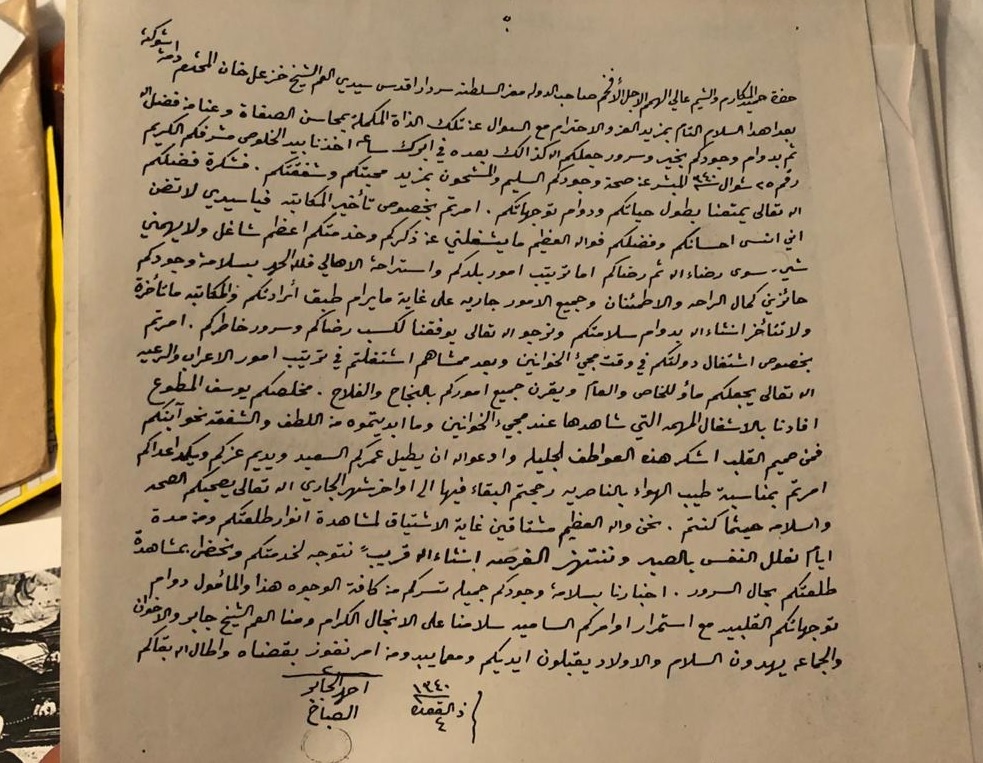 حضرة حميد المكارم والشيم عالي الهمم الاجل الأفخم صاحب الدوله معز السلطنه سردار اقدس سيدي العم الشيخ خزعل خان المحترم دامة شوكته
بعد اهدا السلام التام بمزيد العز والاحترام مع السوال عن تلك الذاة المكملة بمحاسن الصفاة وعنا من فضل الله
ثم بدوام وجودكم بخير وسرور جعلكم الله كذالك بعده في ابرك ساعه اخذنا بيد الخلوص مشرفكم الكريم
رقم ٢٥ شوال ٣٤٠ المبشر عن صحة وجودكم السليم والمشحون بمزيد محبتكم وشفقتكم . فشكرة فضلكم
الله تعالى يمتعنا بطول حياتكم ودوام توجهاتكم . امرتم بخصوص تأخير المكاتبه فيا سيدي لا تضن
اني انسى احسانكم وفضلكم فوالله العظيم ما يشغلني عن ذكركم وخدمتكم اعظم شاغل ولا يهمني
شيء سوى رضاء الله ثم رضاكم اما ترتيب امور بلدكم واستراحة الاهالي فلله الحمد بسلامة وجودكم
حائزين كمال الراحه والاطمئنان وجميع الامور جاريه على غاية ما يرام طبق أرادتكم والمكاتبه ما تأخرة
ولا تتأخر انشاء الله بدوام سلامتكم ونرجو الله تعالى يوفقنا لكسب رضاكم وسرور خاطركم . امرتم
بخصوص اشتغال دولتكم في وقت مجيئ الخوانين وبعد ممشاهم اشتغلتم في ترتيب امور الاعراب والرعيه
الله تعالى يجعلكم مأو للخاص والعام ويقرن جميع اموركم بالنجاح والفلاح . مخلصكم يوسف المطوع
افادنا بالاشغال المهمه التي شاهدها عند مجيء الخوانين وما ابديتموه من اللطف والشفقه نحو آبنكم
فمن صميم القلب اشكر هذه العواطف الجليله وادعو الله ان يطيل عمركم السعيد ويديم عزكم ويكبد اعداكم
امرتم بمناسبة طيب الهواء بالناصريه رجحتم البقاء فيها الى اواخر شهر الجاري الله تعالى يصحبكم الصحه
والسلامه حيثما كنتم . نحن والله العظيم مشتاقين غاية الاشتياق لمشاهدة انوار طلعتكم ومن مدة
ايام نعلل النفس بالصبر وننتهز الفرصه انشاء الله قريباً نتوجه لخدمتكم ونحضى بمشاهدة
طلعتكم بحال السرور . اخبارنا بسلامة وجودكم جميله تسركم من كافة الوجوه هذا والمأمول دوام
توجهاتكم القلبيه مع استمرار اوامركم الساميه سلامنا على الانجال الكرام ومنا العم الشيخ جابر والاخوان
والجماعه يهدون السلام والاولاد يقبلون ايديكم ومهما يبد من امر نفوز بقضاه واطال الله بقاكم
احمد الجابر
الصباح
١٣٤٠
ذ القعده
٤